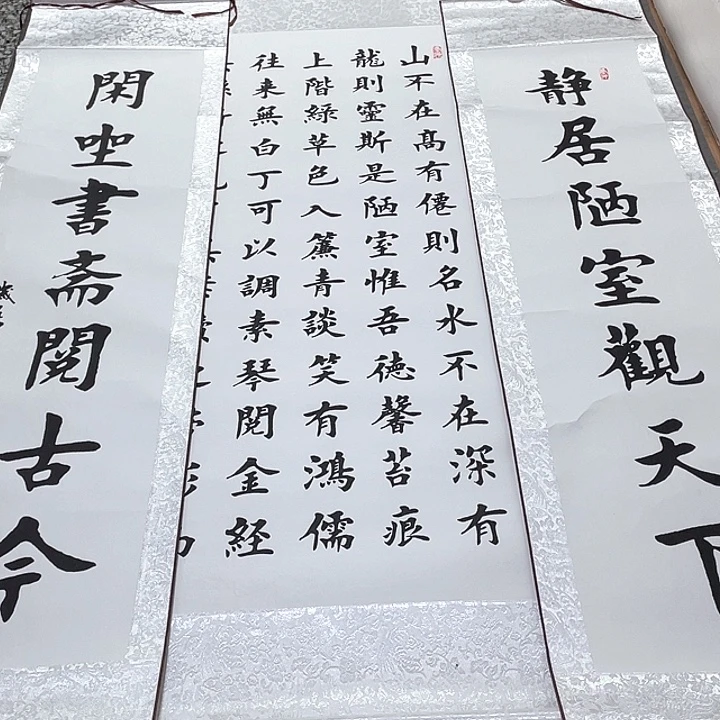 静居陋室觀天下
山不在髙有僊則名水不在深有
龍則靈斯是陋室惟吾德馨苔痕
上階綠草色入簾青談笑有鴻儒
往来無白丁可以調素琴閲金経
閑坐書斋閲古今